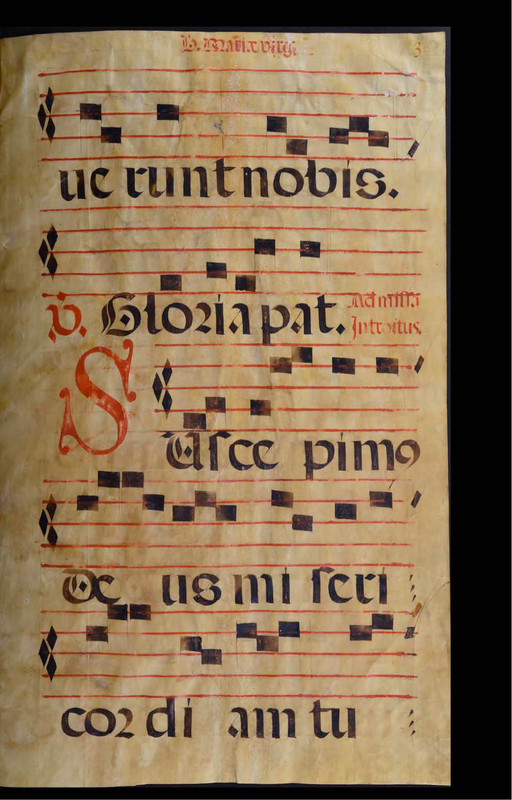 B. Mariæ virgi. 3
ue runt nobis.
℣. Gloria pat. Ad missã
Introitus.
SUsce pimꝰ
De us mi seri
cor di am tu